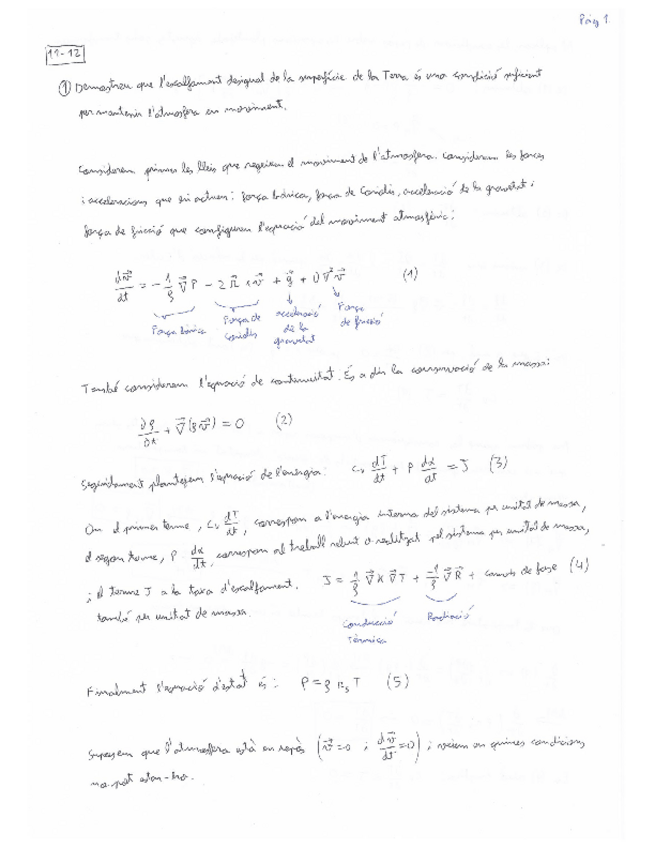 Pág 1
11-12
① Demostreu que l'escalfament desigual de la superfície de la Terra és una condició suficient
per mantenir l'atmosfera en moviment.
Considerem primer les lleis que regeixen el moviment de l'atmosfera. Considerem les forces
i acceleracions que hi actuen: força bàrica, força de Coriolis, acceleració de la gravetat i
força de fricció que configuren l'equació del moviment atmosfèric:
dv⃗/dt = - 1/ρ ∇⃗P - 2 Ω⃗ × v⃗ + g⃗ + υ ∇² v⃗ (1)
Força bàrica Força de Coriolis acceleració de la gravetat Força de fricció
També considerem l'equació de continuïtat. És a dir la conservació de la massa:
∂ρ/∂t + ∇⃗(ρv⃗) = 0 (2)
Seguidament plantegem l'equació de l'energia: Cv dT/dt + P dα/dt = J (3)
On el primer terme, Cv dT/dt, correspon a l'energia interna del sistema per unitat de massa,
el segon terme, P dα/dt, correspon al treball rebut o realitzat pel sistema per unitat de massa,
i el terme J a la taxa d'escalfament. J = 1/ρ ∇⃗ K ∇⃗ T + -1/ρ ∇⃗ R⃗ + canvis de fase (4)
també per unitat de massa.
Conducció Tèrmica Radiació
Finalment l'equació d'estat és: P = ρ Rs T (5)
Suposem que l'atmosfera està en repòs (v⃗=0 ; dv⃗/dt=0) i veiem en quines condicions
no pot estar-ho.